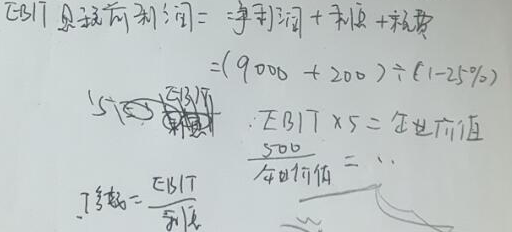 EBIT 息税前利润= 净利润+利息+税费
=(9000+200)÷(1-25%)
EBIT×5=企业价值
500/企业价值=..
=EBIT/利息